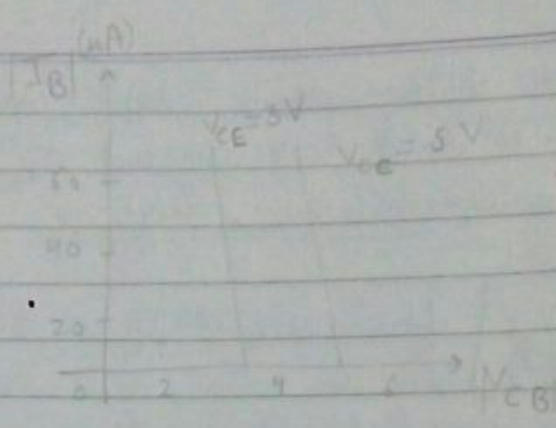 |I_B| (μA)
V_CE = 3 V
V_CE = 5 V
60
40
20
0 2 4 6 |V_CB|